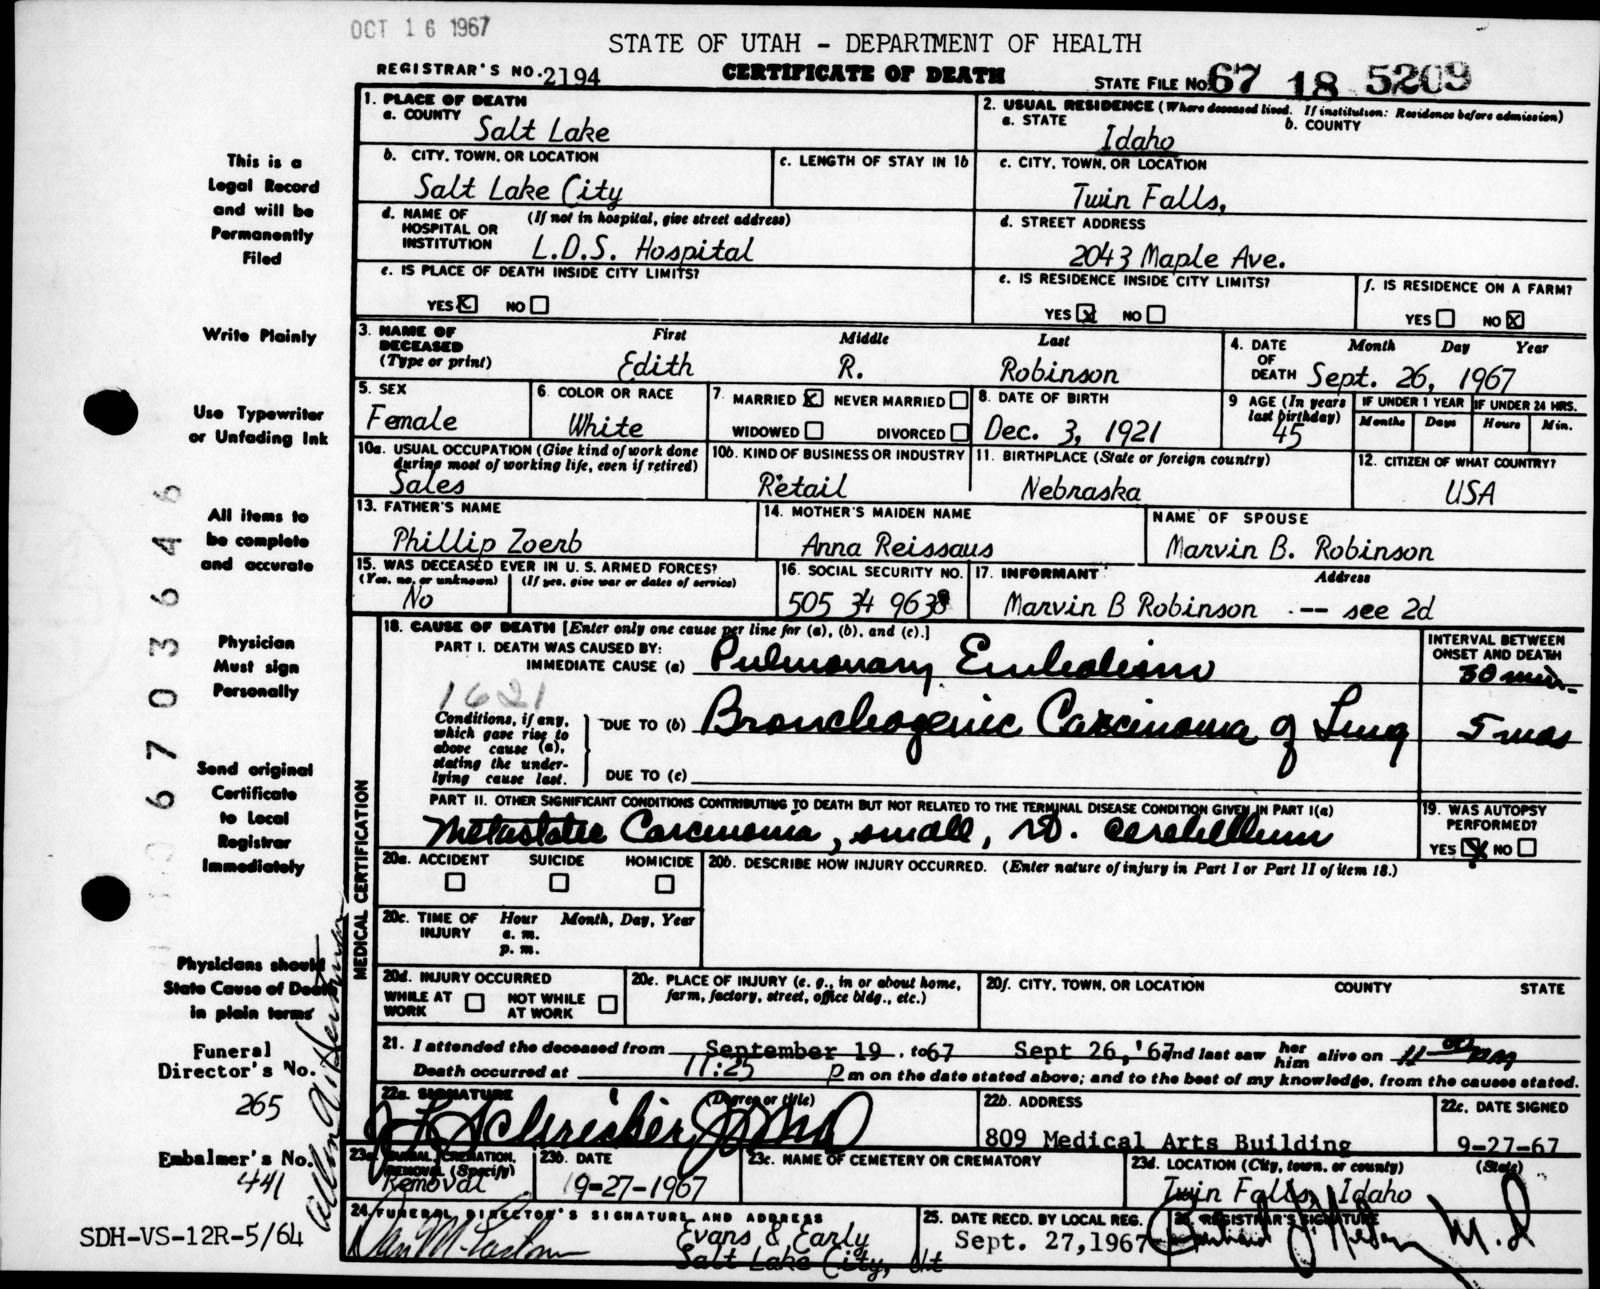 OCT 16 1967
STATE OF UTAH - DEPARTMENT OF HEALTH
REGISTRAR'S NO. 2194
CERTIFICATE OF DEATH
STATE FILE NO. 67 18 5209
1. PLACE OF DEATH
a. COUNTY
Salt Lake
2. USUAL RESIDENCE (Where deceased lived. If institution: Residence before admission)
a. STATE
Idaho
b. COUNTY
b. CITY, TOWN, OR LOCATION
Salt Lake City
c. LENGTH OF STAY IN 1b
c. CITY, TOWN, OR LOCATION
Twin Falls,
d. NAME OF HOSPITAL OR INSTITUTION (If not in hospital, give street address)
L.D.S. Hospital
d. STREET ADDRESS
2043 Maple Ave.
e. IS PLACE OF DEATH INSIDE CITY LIMITS?
YES NO
e. IS RESIDENCE INSIDE CITY LIMITS?
YES NO
f. IS RESIDENCE ON A FARM?
YES NO
3. NAME OF DECEASED (Type or print)
First Middle Last
Edith R. Robinson
4. DATE OF DEATH
Month Day Year
Sept. 26, 1967
5. SEX
Female
6. COLOR OR RACE
White
7. MARRIED NEVER MARRIED
WIDOWED DIVORCED
8. DATE OF BIRTH
Dec. 3, 1921
9 AGE (In years last birthday)
45
IF UNDER 1 YEAR
Months Days
IF UNDER 24 HRS.
Hours Min.
10a. USUAL OCCUPATION (Give kind of work done during most of working life, even if retired)
Sales
10b. KIND OF BUSINESS OR INDUSTRY
Retail
11. BIRTHPLACE (State or foreign country)
Nebraska
12. CITIZEN OF WHAT COUNTRY?
USA
13. FATHER'S NAME
Phillip Zoerb
14. MOTHER'S MAIDEN NAME
Anna Reissaus
NAME OF SPOUSE
Marvin B. Robinson
15. WAS DECEASED EVER IN U.S. ARMED FORCES?
(Yes, no, or unknown) (If yes, give war or dates of service)
No
16. SOCIAL SECURITY NO.
505 34 9638
17. INFORMANT Address
Marvin B Robinson -- see 2d
MEDICAL CERTIFICATION
18. CAUSE OF DEATH [Enter only one cause per line for (a), (b), and (c).]
PART I. DEATH WAS CAUSED BY:
IMMEDIATE CAUSE (a) Pulmonary Embolism
INTERVAL BETWEEN ONSET AND DEATH
30 min.
1621
Conditions, if any, which gave rise to above cause (a), stating the underlying cause last.
DUE TO (b) Bronchogenic Carcinoma of Lung 5 mos
DUE TO (c)
PART II. OTHER SIGNIFICANT CONDITIONS CONTRIBUTING TO DEATH BUT NOT RELATED TO THE TERMINAL DISEASE CONDITION GIVEN IN PART I(a)
Metastatic Carcinoma, small, rt. cerebellum
19. WAS AUTOPSY PERFORMED?
YES NO
20a. ACCIDENT SUICIDE HOMICIDE
20b. DESCRIBE HOW INJURY OCCURRED. (Enter nature of injury in Part I or Part II of item 18.)
20c. TIME OF INJURY
Hour Month, Day, Year
a. m.
p. m.
20d. INJURY OCCURRED
WHILE AT WORK NOT WHILE AT WORK
20e. PLACE OF INJURY (e. g., in or about home, farm, factory, street, office bldg., etc.)
20f. CITY, TOWN, OR LOCATION COUNTY STATE
21. I attended the deceased from September 19 . to 67 Sept 26, '67 and last saw her him alive on 11
Death occurred at 11:25 p m on the date stated above; and to the best of my knowledge, from the causes stated.
22a. SIGNATURE (Degree or title)
22b. ADDRESS
809 Medical Arts Building
22c. DATE SIGNED
9-27-67
23a. BURIAL, CREMATION, REMOVAL (Specify)
Removal
23b. DATE
9-27-1967
23c. NAME OF CEMETERY OR CREMATORY
23d. LOCATION (City, town, or county) (State)
Twin Falls, Idaho
24. FUNERAL DIRECTOR'S SIGNATURE AND ADDRESS
Evans & Early
Salt Lake City, Ut
25. DATE RECD. BY LOCAL REG.
Sept. 27, 1967
26. REGISTRAR'S SIGNATURE
M.D
This is a
Legal Record
and will be
Permanently
Filed
Write Plainly
Use Typewriter
or Unfading Ink
All items to
be complete
and accurate
Physician
Must sign
Personally
Send original
Certificate
to Local
Registrar
Immediately
Physicians should
State Cause of Death
in plain terms
Funeral
Director's No.
265
Embalmer's No.
441
SDH-VS-12R-5/64
67036446